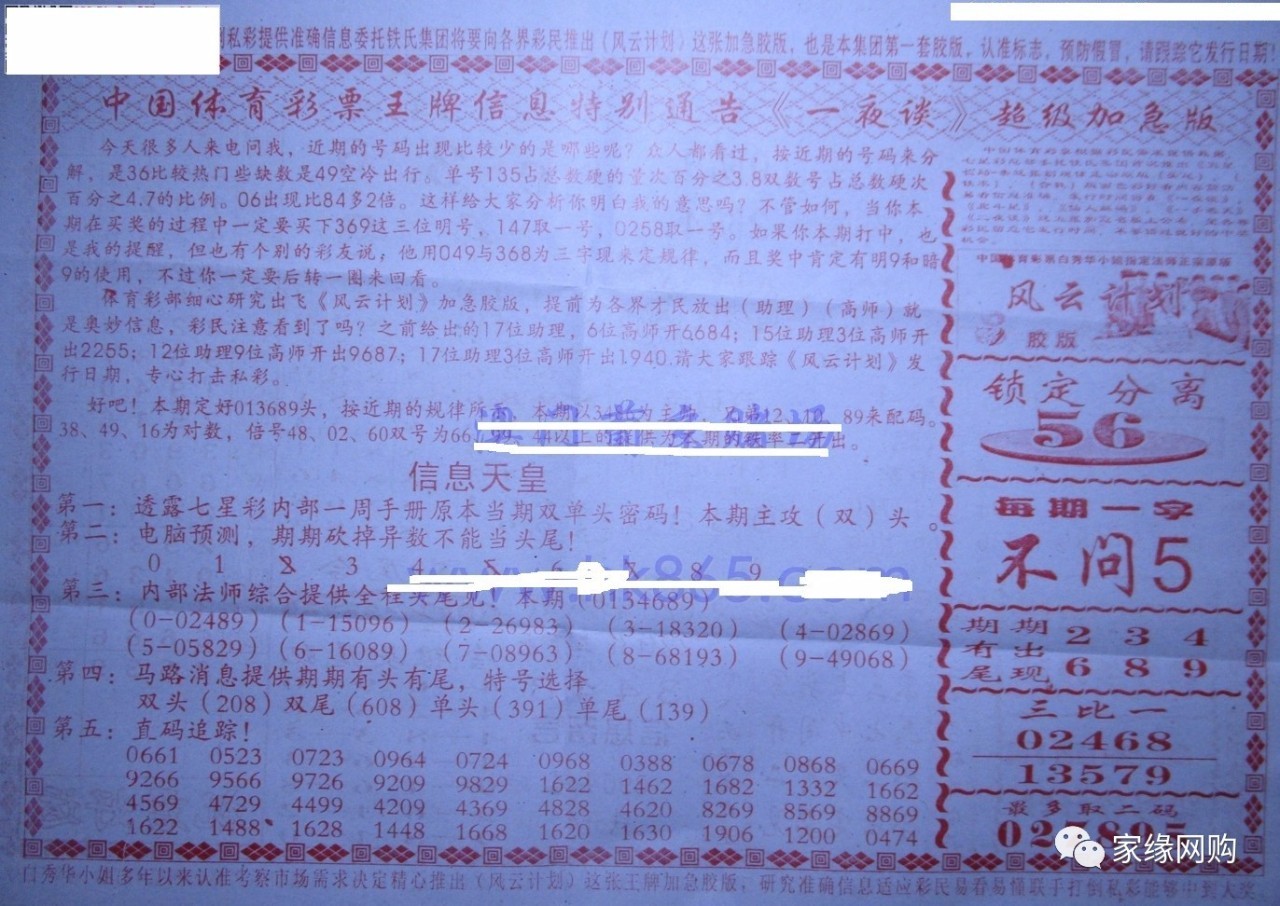 到私彩提供准确信息委托铁氏集团将要向各界彩民推出（风云计划）这张加急胶版，也是本集团第一套胶版，认准标志，预防假冒，请跟踪它发行日期！
中国体育彩票王牌信息特别通告《一夜谈》超级加急版
今天很多人来电问我，近期的号码出现比较少的是哪些呢？众人都看过，按近期的号码来分
解，是36比较热门些缺数是49空冷出行。单号135占总数硬的量次百分之3.8双数号占总数硬次
百分之4.7的比例。06出现比84多2倍。这样给大家分析你明白我的意思吗？不管如何，当你本
期在买奖的过程中一定要买下369这三位明号，147取一号，0258取一号。如果你本期打中，也
是我的提醒，但也有个别的彩友说：他用049与368为三字现来定规律，而且奖中肯定有明9和暗
9的使用，不过你一定要后转一圈来回看。
体育彩部细心研究出飞《风云计划》加急胶版，提前为各界才民放出（助理）（高师）就
是奥妙信息，彩民注意看到了吗？之前给出的17位助理，6位高师开6684；15位助理3位高师开
出2255；12位助理9位高师开出9687；17位助理3位高师开出1940.请大家跟踪《风云计划》发
行日期，专心打击私彩。
好吧！本期定好013689头，按近期的规律所 本期以34 为主 89来配码。
38、49、16为对数，倍号48、02、60双号为66、 44以上的提供为本期的 率 开出。
信息天皇
第一：透露七星彩内部一周手册原本当期双单头密码！本期主攻（双）头。
第二：电脑预测，期期砍掉异数不能当头尾！
0 1 2 3 4 5 6 7 8 9
www. k865.com
第三：内部法师综合提供全程头尾见！本期（0134689）
（0-02489）（1-15096）（2-26983）（3-18320）（4-02869）
（5-05829）（6-16089）（7-08963）（8-68193）（9-49068）
第四：马路消息提供期期有头有尾，特号选择
双头（208）双尾（608）单头（391）单尾（139）
第五：直码追踪！
0661 0523 0723 0964 0724 0968 0388 0678 0868 0669
9266 9566 9726 9209 9829 1622 1462 1682 1332 1662
4569 4729 4499 4209 4369 4828 4620 8269 8569 8869
1622 1488 1628 1448 1668 1620 1630 1906 1200 0474
中国体育彩票白秀华小姐指定法师正宗原版
风云计划
胶版
锁定分离
56
每期一字
不问5
期期有出尾现
2 3 4
6 8 9
三比一
02468
13579
最多取二码
家缘网购
门秀华小姐多年以来认准考察市场需求决定精心推出（风云计划）这张王牌加急胶版，研究准确信息适应彩民易看易懂联手打倒私彩能够中到大奖